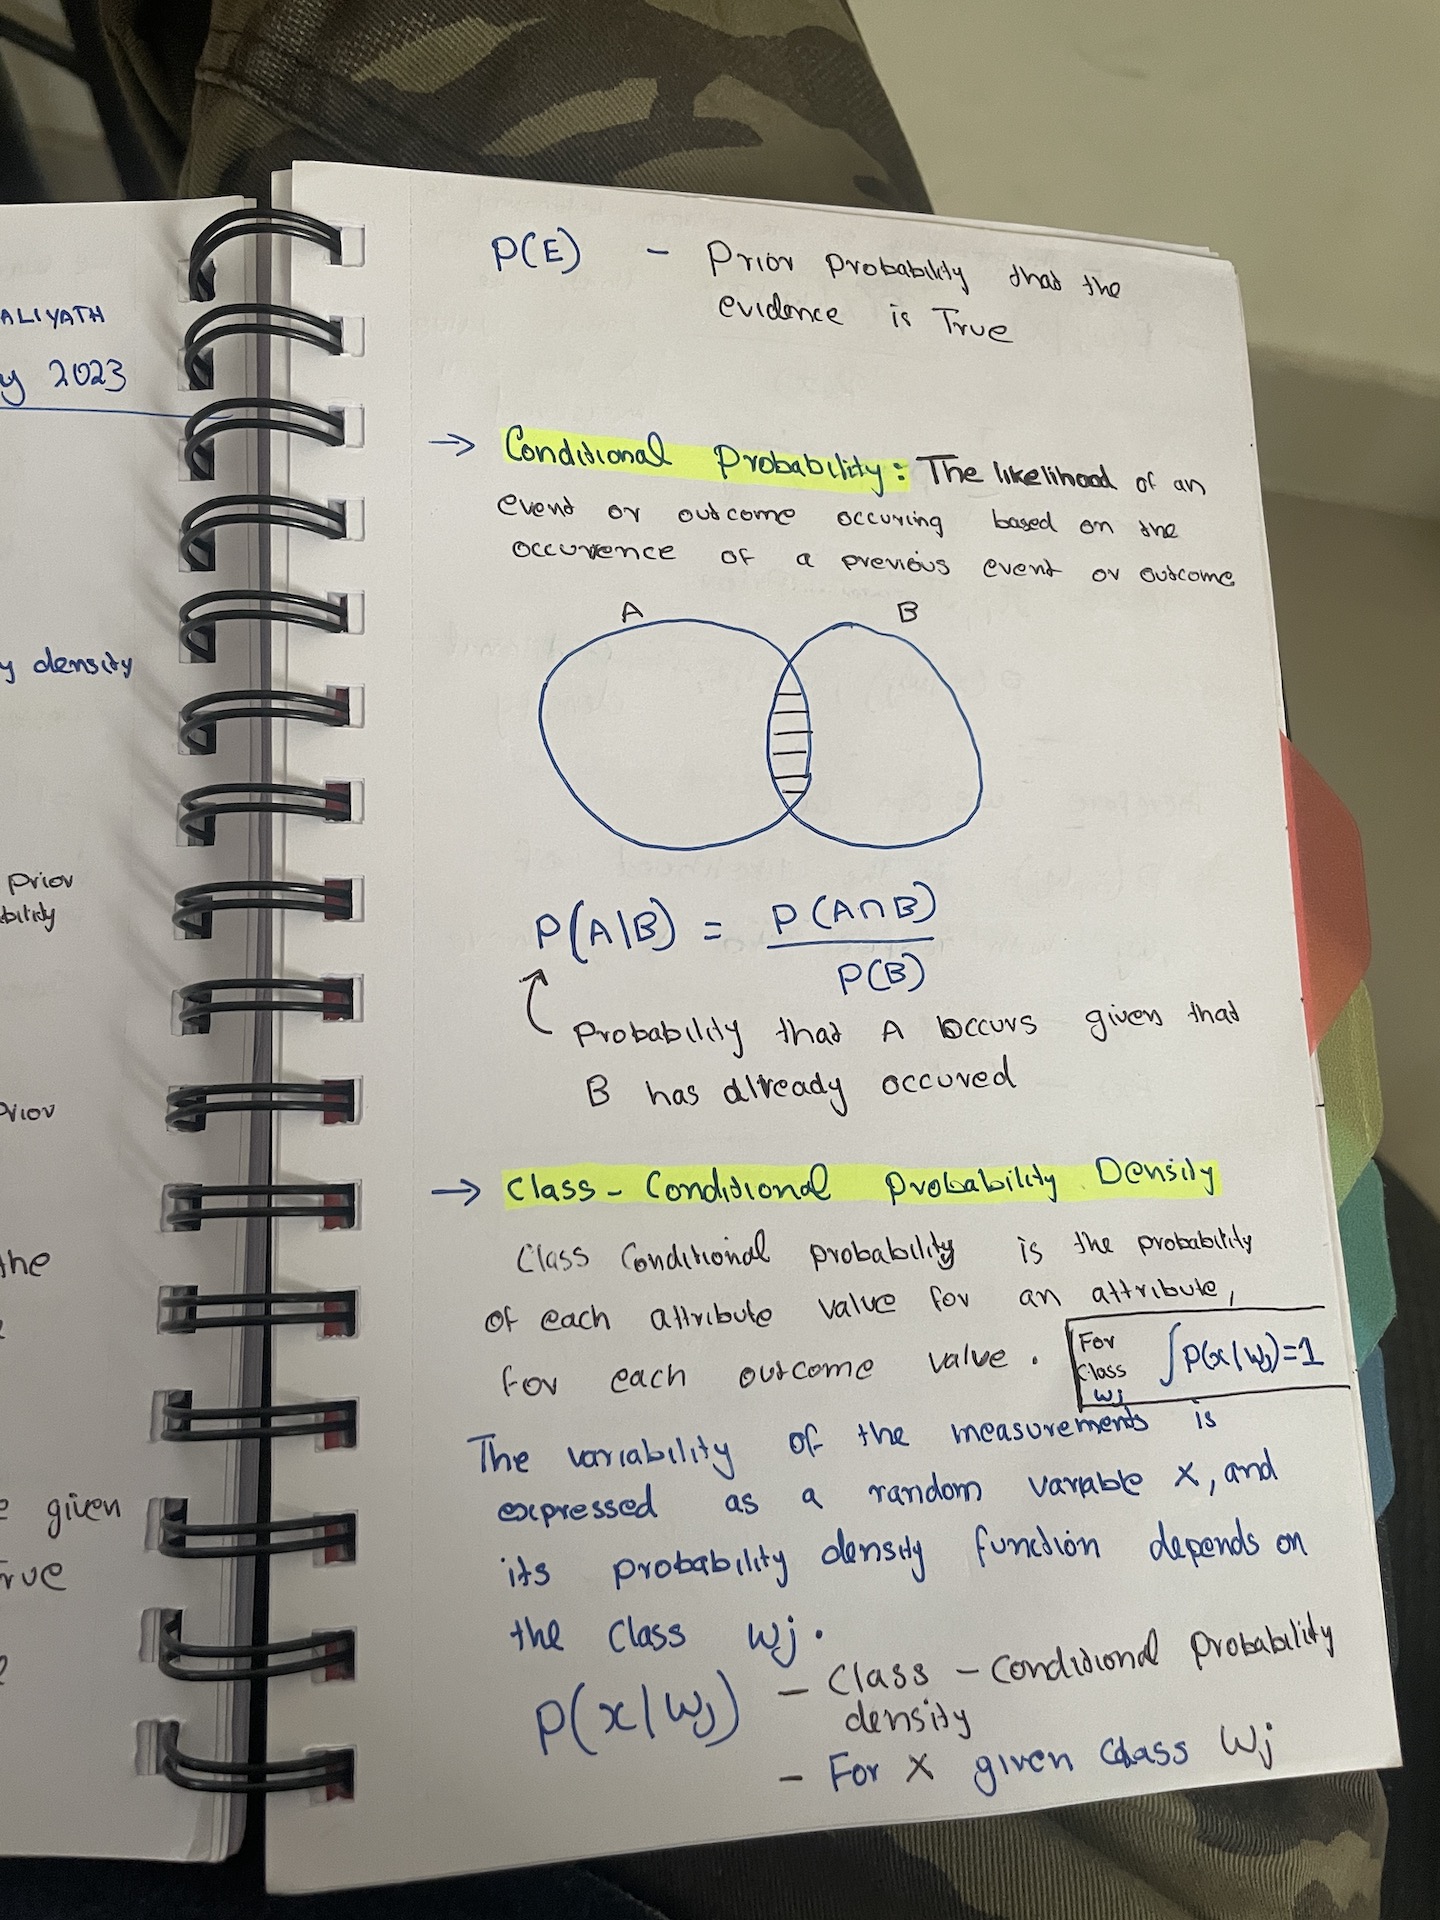 ALIYATH
y 2023
y density
prior
bility
prior
the
e given
rue
P(E) - Prior probability that the
evidence is True
→ Conditional Probability: The likelihood of an
event or outcome occuring based on the
occurrence of a previous event or outcome
A B
P(A|B) = P(A∩B)
P(B)
Probability that A occurs given that
B has already occured
→ Class - Conditional Probability Density
Class Conditional probability is the probability
of each attribute value for an attribute,
for each outcome value.
For
Class
wj
∫p(x|wj)=1
The variability of the measurements is
expressed as a random variable x, and
its probability density function depends on
the class wj.
p(x|wj) - Class - conditional probability
density
- For x given class wj